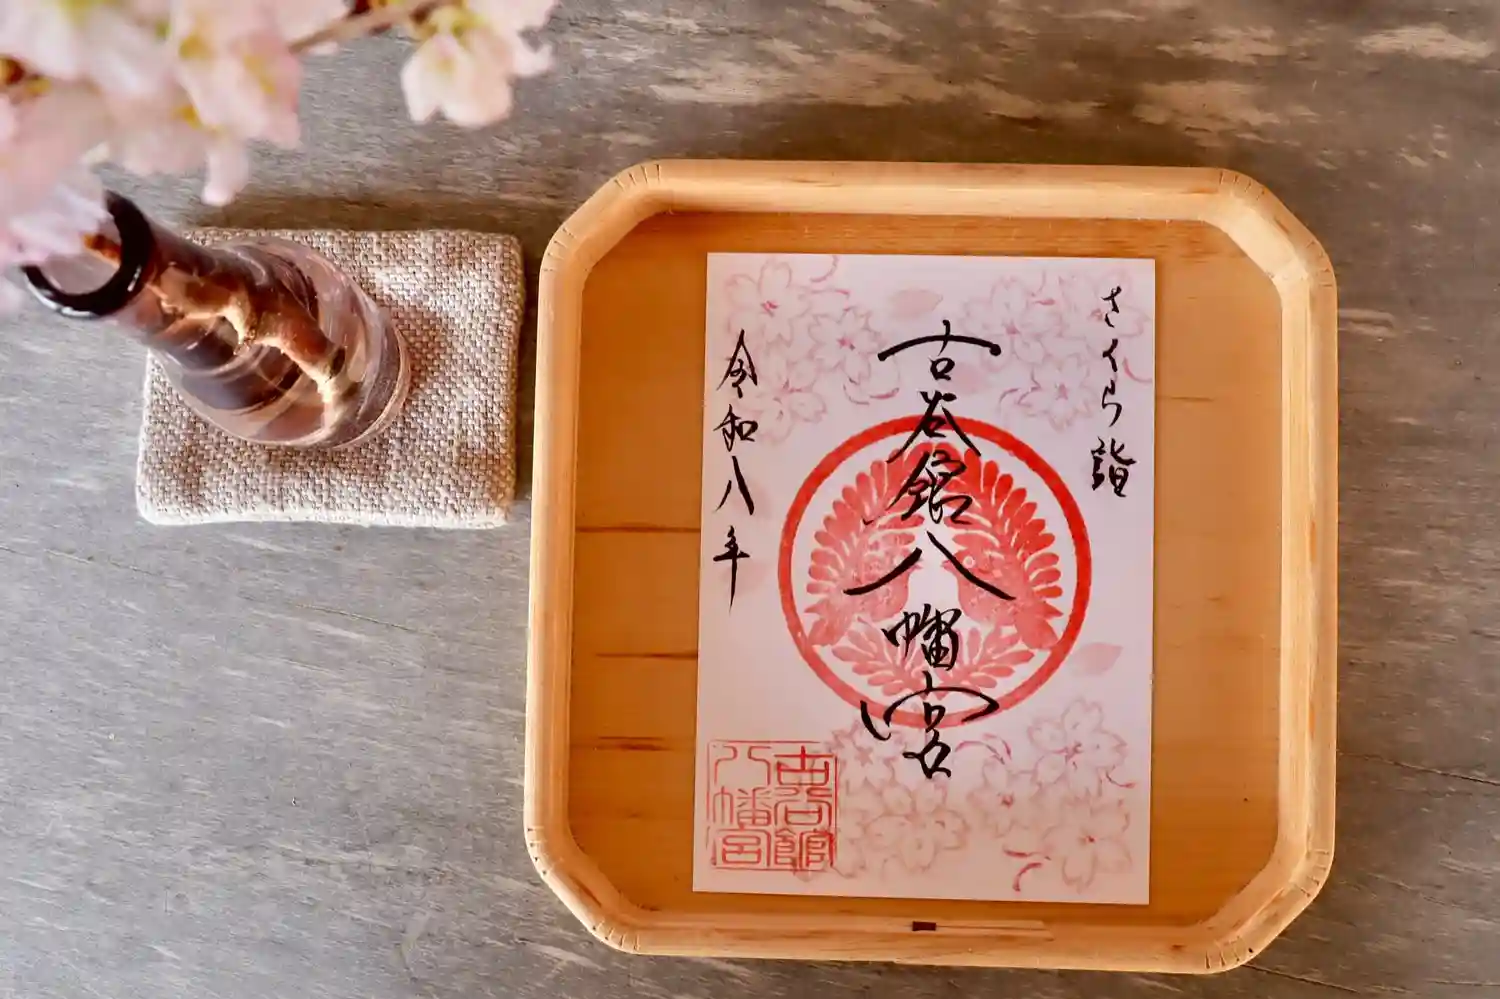 さくら詣
古谷館八幡宮
令和八年
古谷館
八幡宮